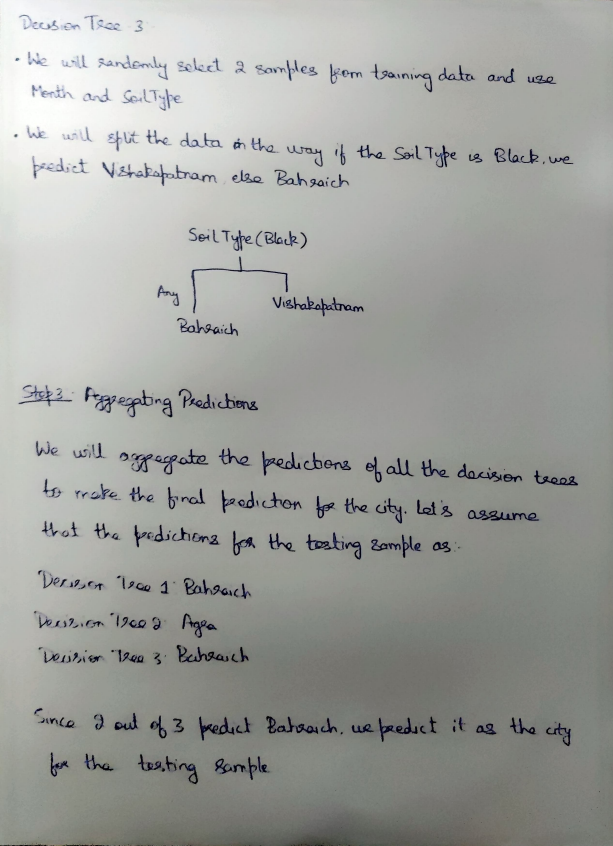 Decision Tree 3
• We will randomly select 2 samples from training data and use
Month and SoilType
• We will split the data in the way if the Soil Type is Black, we
predict Vishakapatnam else Bahraich
Soil Type (Black)
Any
Vishakapatnam
Bahraich
Step 3: Aggregating Predictions
We will aggregate the predictions of all the decision trees
to make the final prediction for the city. Let's assume
that the predictions for the testing sample as:
Decision Tree 1: Bahraich
Decision Tree 2 Agra
Decision Tree 3: Bahraich
Since 2 out of 3 predict Bahraich, we predict it as the city
for the testing sample